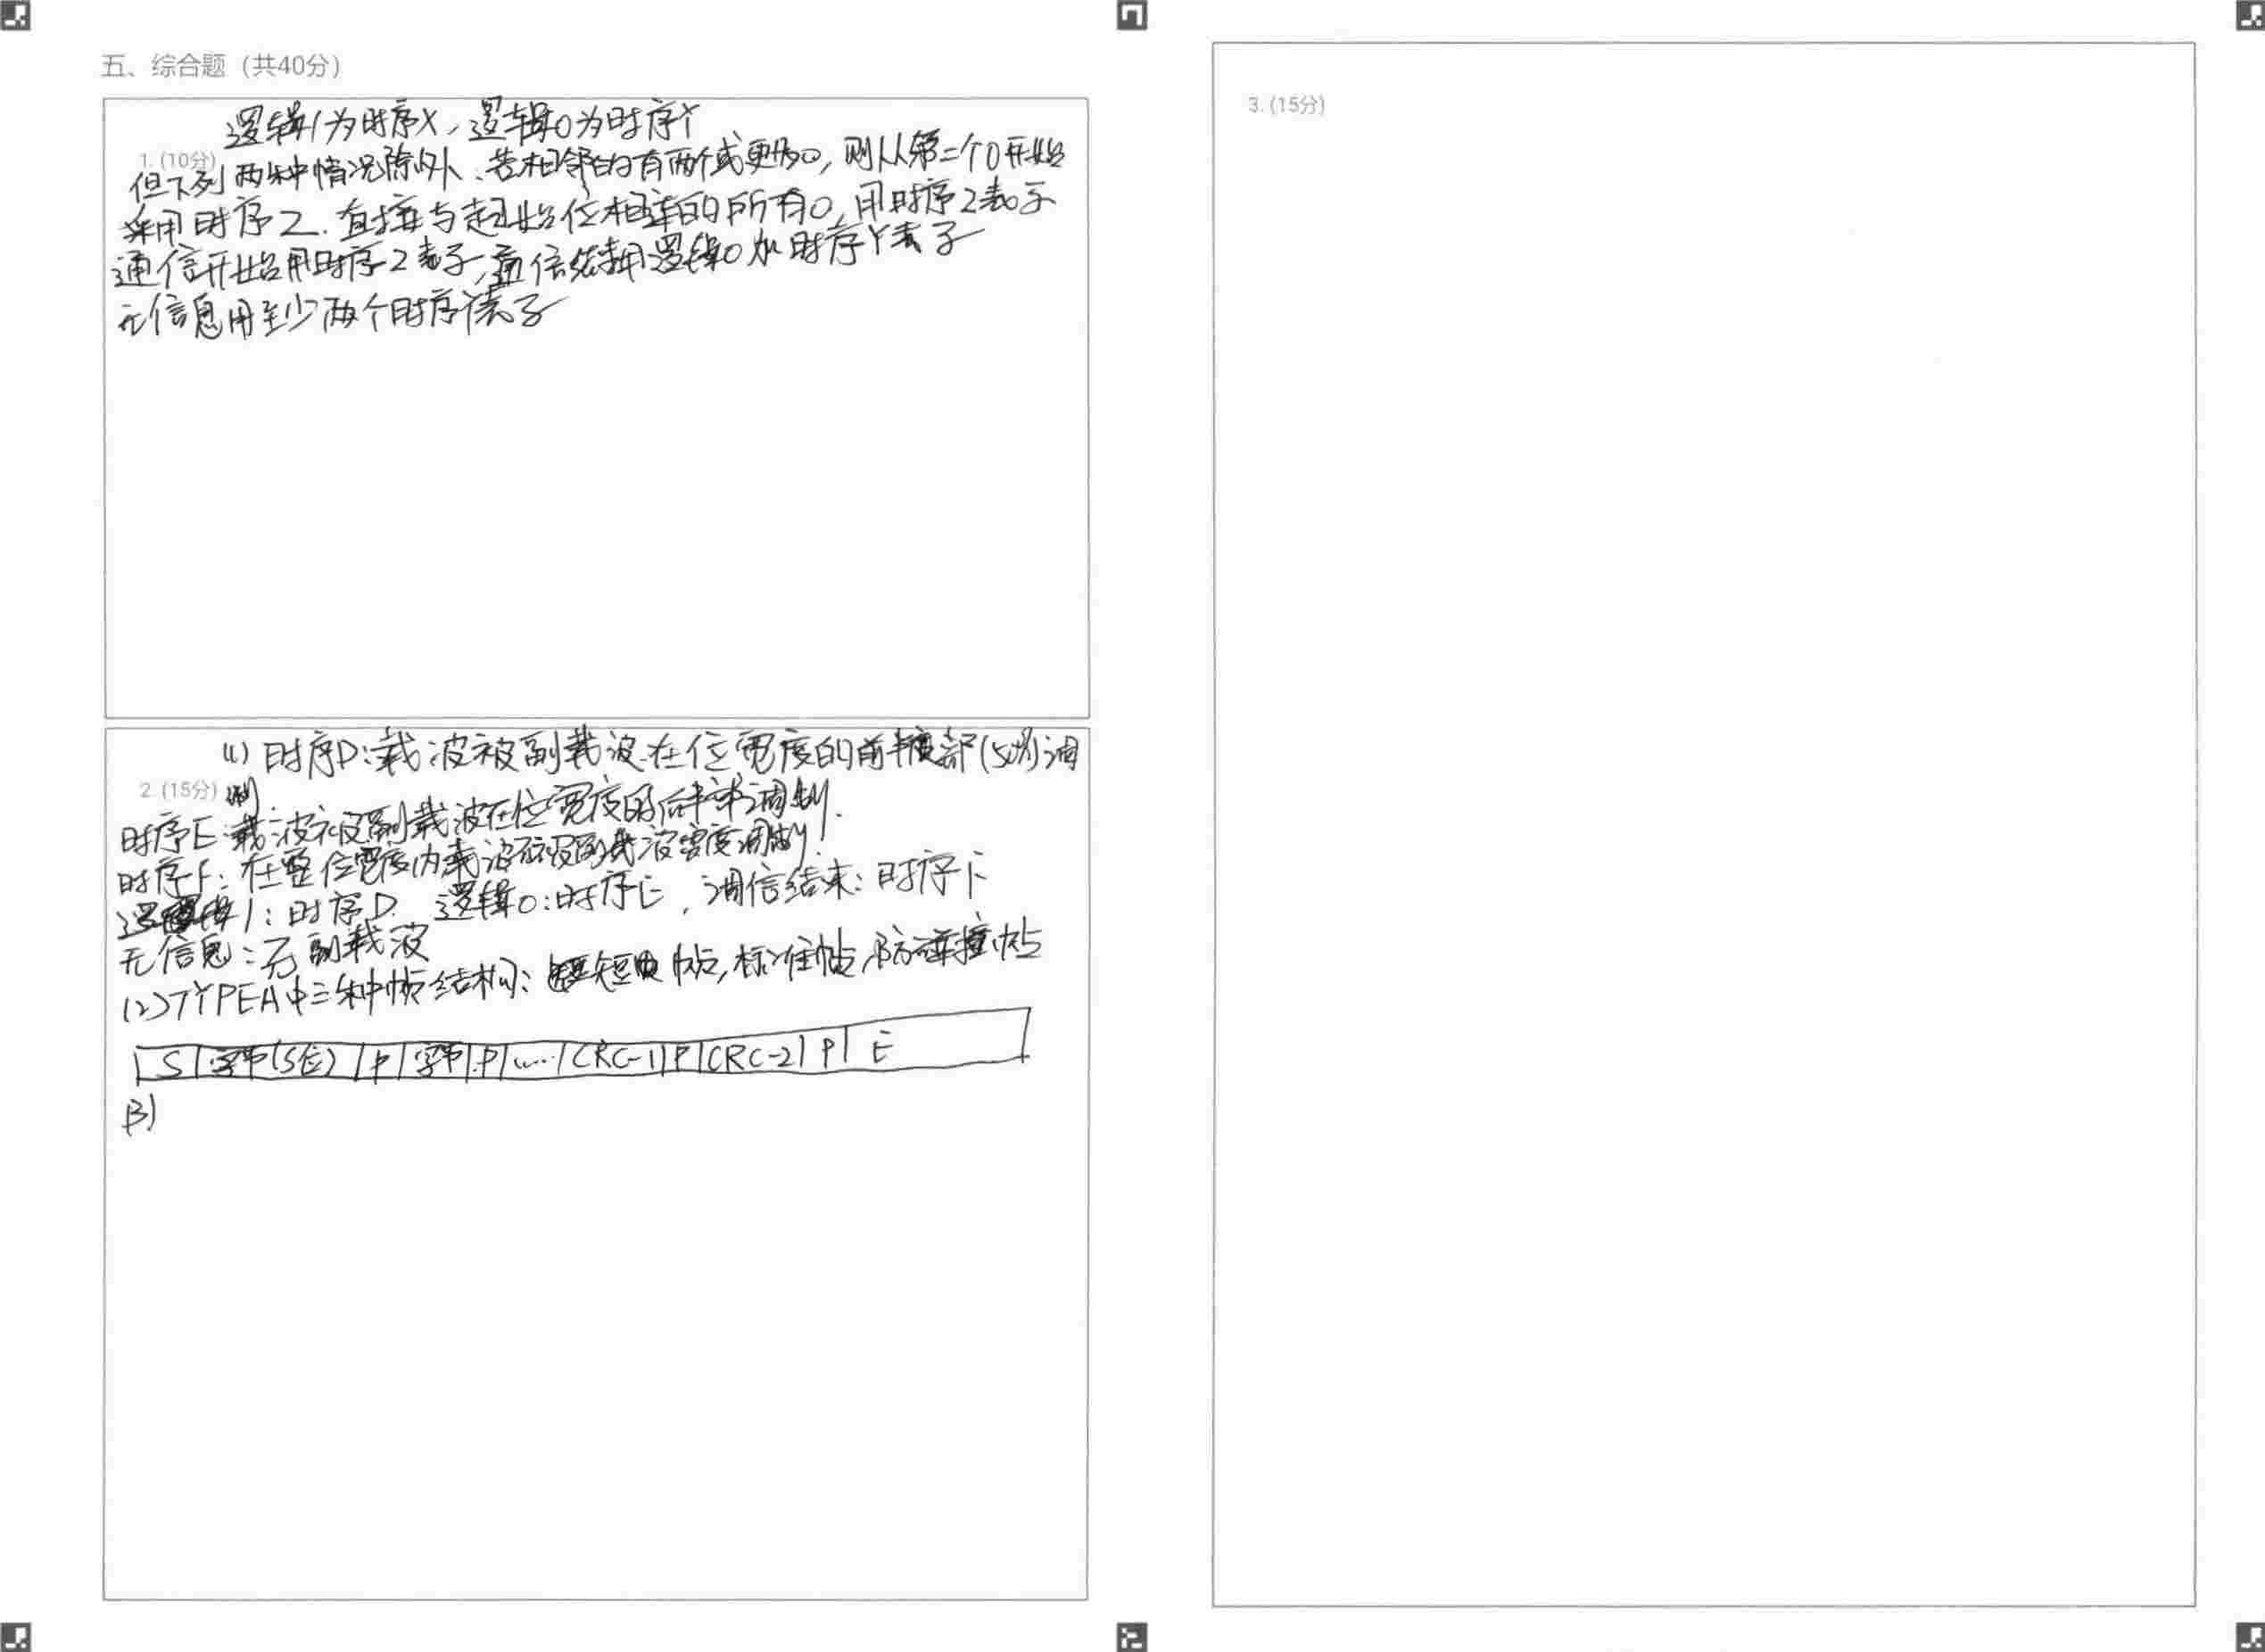 五、综合题（共40分）
逻辑1为时序X，逻辑0为时序Y
1. (10分)
但下列两种情况除外、若相邻的有两个或更多0，则从第二个0开始
采用时序Z.直接与起始位相连的所有0，用时序Z表示
通信开始用时序Z表示，通信结束用逻辑0加时序Y表示
无信息用至少两个时序Y表示
(1) 时序D:载波被副载波在位宽度的前半部(50%)调
2. (15分) 制.
时序E:载波被副载波在位宽度的后半部调制.
时序F:在整位宽度内载波不被副载波调制.
逻辑1:时序D. 逻辑0:时序E，通信结束:时序F
无信息:无副载波
(2)TYPEA中三种帧结构:短帧,标准帧,防碰撞帧
S 字节(8位) P 字节 P …… CRC-1 P CRC-2 P E
(3)
3. (15分)